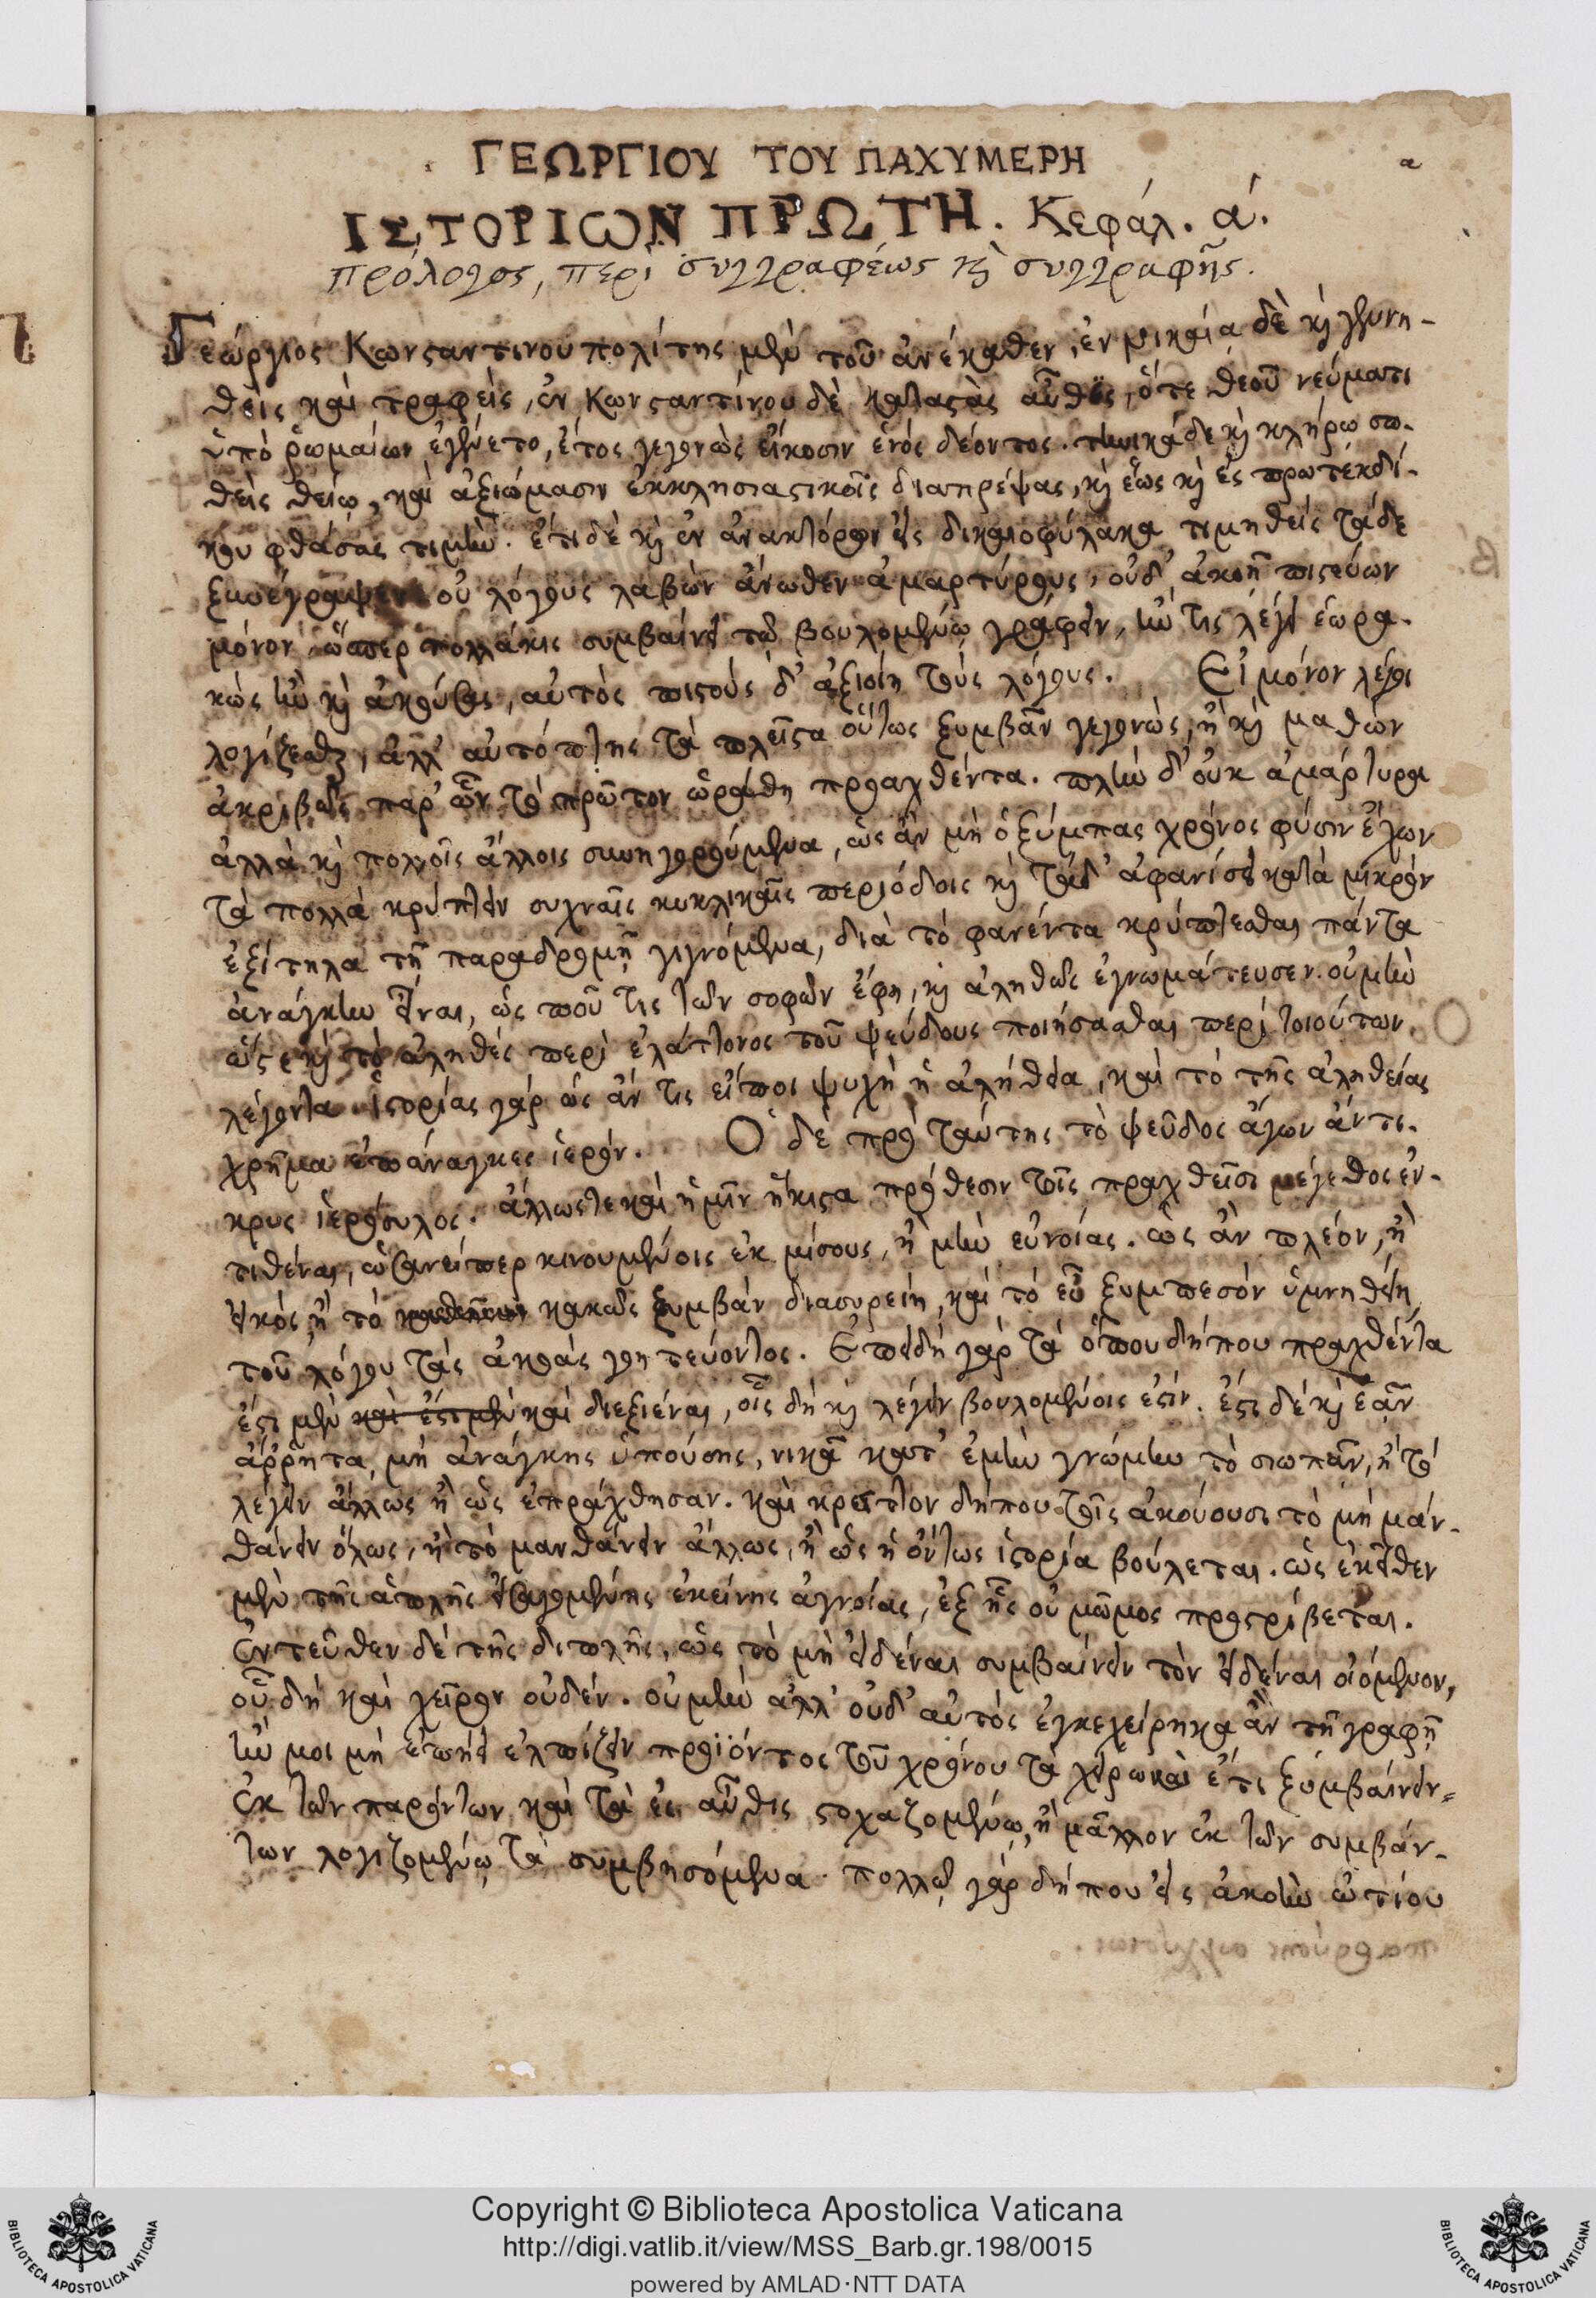 ΓΕΩΡΓΙΟΥ ΤΟΥ ΠΑΧΥΜΕΡΗ
α
ΙΣΤΟΡΙΩΝ ΠΡΩΤΗ. Κεφάλ. ά.
πρόλογος, περὶ συγγραφέως κὴ συγγραφῆς.
Γεώργιος Κωνσταντινουπολίτης μὲν τοῦ ἀνέκαθεν, ἐν νικαία δὲ κὴ γεννη-
θεὶς καὶ τραφεὶς, ἐν Κωνσταντίνου δὲ καταστὰς αὖθις, ὅτε θεοῦ νεύματι
ὑπὸ ῥωμαίων ἐγένετο, ἔτος γεγονὼς εἴκοσιν ἑνός δέοντος. τηνικάδε κὴ κλήρω δο-
θεὶς θείῳ, καὶ ἀξιώμασιν ἐκκλησιαστικοῖς διαπρέψας, κὴ ἕως κὴ ἐς πρωτέκδι-
κον φθάσας τιμὴν. ἔτι δὲ κὴ ἐν ἀνακτόροιν εἰς δικαιοφύλακα τιμηθείς τάδε
ξυνέγραψεν οὐ λόγους λαβὼν ἄνωθεν ἀμαρτύρους, οὐδ' ἀκοῇ πιστεύων
μόνον, ὥσπερ πολλάκις συμβαίνει τῷ βουλομένῳ γράφειν, ἤν τις λέγει ἑωρα-
κὼς ἢν κὴ ἀκούσας, αὐτὸς πιστοὺς δ' ἀξιοίη τοὺς λόγους. Εἰ μόνον λέγοι
λογίζεσθαι, ἀλλ' αὐτόπτης τὰ πλεῖστα οὕτως ξυμβᾶν γεγονὼς, ἢ κὴ μαθὼν
ἀκριβῶς παρ' ὧν τὸ πρῶτον ὡράθη πραχθέντα. πλὴν δ' οὐκ ἀμάρτυροι
ἀλλὰ κὴ πολλοῖς ἄλλοις συνηγορούμενα, ὡς ἂν μὴ ὁ ξύμπας χρόνος φύσιν ἔχων
τὰ πολλὰ κρύπτειν συχναῖς κυκλικαῖς περιόδοις κὴ τάδ' ἀφανίσει κατὰ μικρὸν
ἐξίτηλα τῇ παραδρομῇ γιγνόμενα, διὰ τὸ φανέντα κρύπτεσθαι πάντα
ἀνάγκην εἶναι, ὡς ποῦ τις τῶν σοφῶν ἔφη, κὴ ἀληθῶς ἐγνωμάτευσεν. οὐ μὴν
ὥστε κὴ τὸ ἀληθὲς περὶ ἐλάττονος τοῦ ψεύδους ποιήσασθαι περὶ τοιούτων
λέγοντα. ἱστορίας γὰρ ὡς ἄν τις εἴποι ψυχὴ ἡ ἀλήθεια, καὶ τὸ τῆς ἀληθείας
χρῆμα ἐπάναγκες ἱερόν. Ὁ δὲ πρὸ ταύτης τὸ ψεῦδος ἄγων ἄντι-
κρυς ἱερόσυλος. ἄλλως τε καὶ ἡμῖν ἥκιστα πρόθεσιν τοῖς πραχθεῖσι μέγεθος ἐν-
τιθέναι, ὡσανείπερ κινουμένοις ἐκ μίσους, ἢ μὴν εὐνοίας. ὡς ἂν πλέον, ἢ
εἰκός, ἢ τὸ κακῶς ξυμβὰν διασυρείη, καὶ τὸ εὖ ξυμπεσὸν ὑμνηθείη
τοῦ λόγου τὰς ἀκοὰς γοητεύοντος. Ἐπειδὴ γὰρ τὰ ὁπουδήπου πραχθέντα
ἔστι μὲν καὶ ἔστι μὲν καὶ διεξιέναι, οἷς δὴ κὴ λέγειν βουλομένοις ἐστίν. ἔστι δὲ κὴ ἐᾶν
ἄῤῥητα, μὴ ἀνάγκης ὑπούσης, νικᾷ κατ' ἐμὴν γνώμην τὸ σιωπᾶν, ἢ τὸ
λέγειν ἄλλως ἢ ὡς ἐπράχθησαν. καὶ κρεῖττον δήπου τοῖς ἀκούουσι τὸ μὴ μαν-
θάνειν ὅλως, ἢ τὸ μανθάνειν ἄλλως, ἢ ὡς ἡ ὄντως ἱστορία βούλεται. ὡς ἐκεῖθεν
μὲν τῆς ἁπλῆς εἰσαγομένης ἐκείνης ἀγνοίας, ἐξ ἧς οὐ μῶμος προστρίβεται.
Ἐντεῦθεν δὲ τῆς διπλῆς, ὡς τὸ μὴ εἰδέναι συμβαίνειν τὸν εἰδέναι οἰόμενον,
οὗ δὴ καὶ χεῖρον οὐδέν. οὐ μὴν ἀλλ' οὐδ' αὐτὸς ἐγκεχείρηκα ἂν τῇ γραφῇ
ἤν μοι μὴ ἐπῄει ἐλπίζειν προϊόντος τοῦ χρόνου τὰ χείρω καὶ ἔτι ξυμβαίνειν-
ἐκ τῶν παρόντων καὶ τὰ ἐς αὖθις στοχαζομένῳ, ἢ μᾶλλον ἐκ τῶν συμβάν-
των λογιζομένῳ τὰ συμβησόμενα. πολλῷ γὰρ δήπου εἰς ἀκοὴν ὠτίου
Copyright © Biblioteca Apostolica Vaticana
http://digi.vatlib.it/view/MSS_Barb.gr.198/0015
powered by AMLAD·NTT DATA
BIBLIOTECA APOSTOLICA VATICANA
BIBLIOTECA APOSTOLICA VATICANA